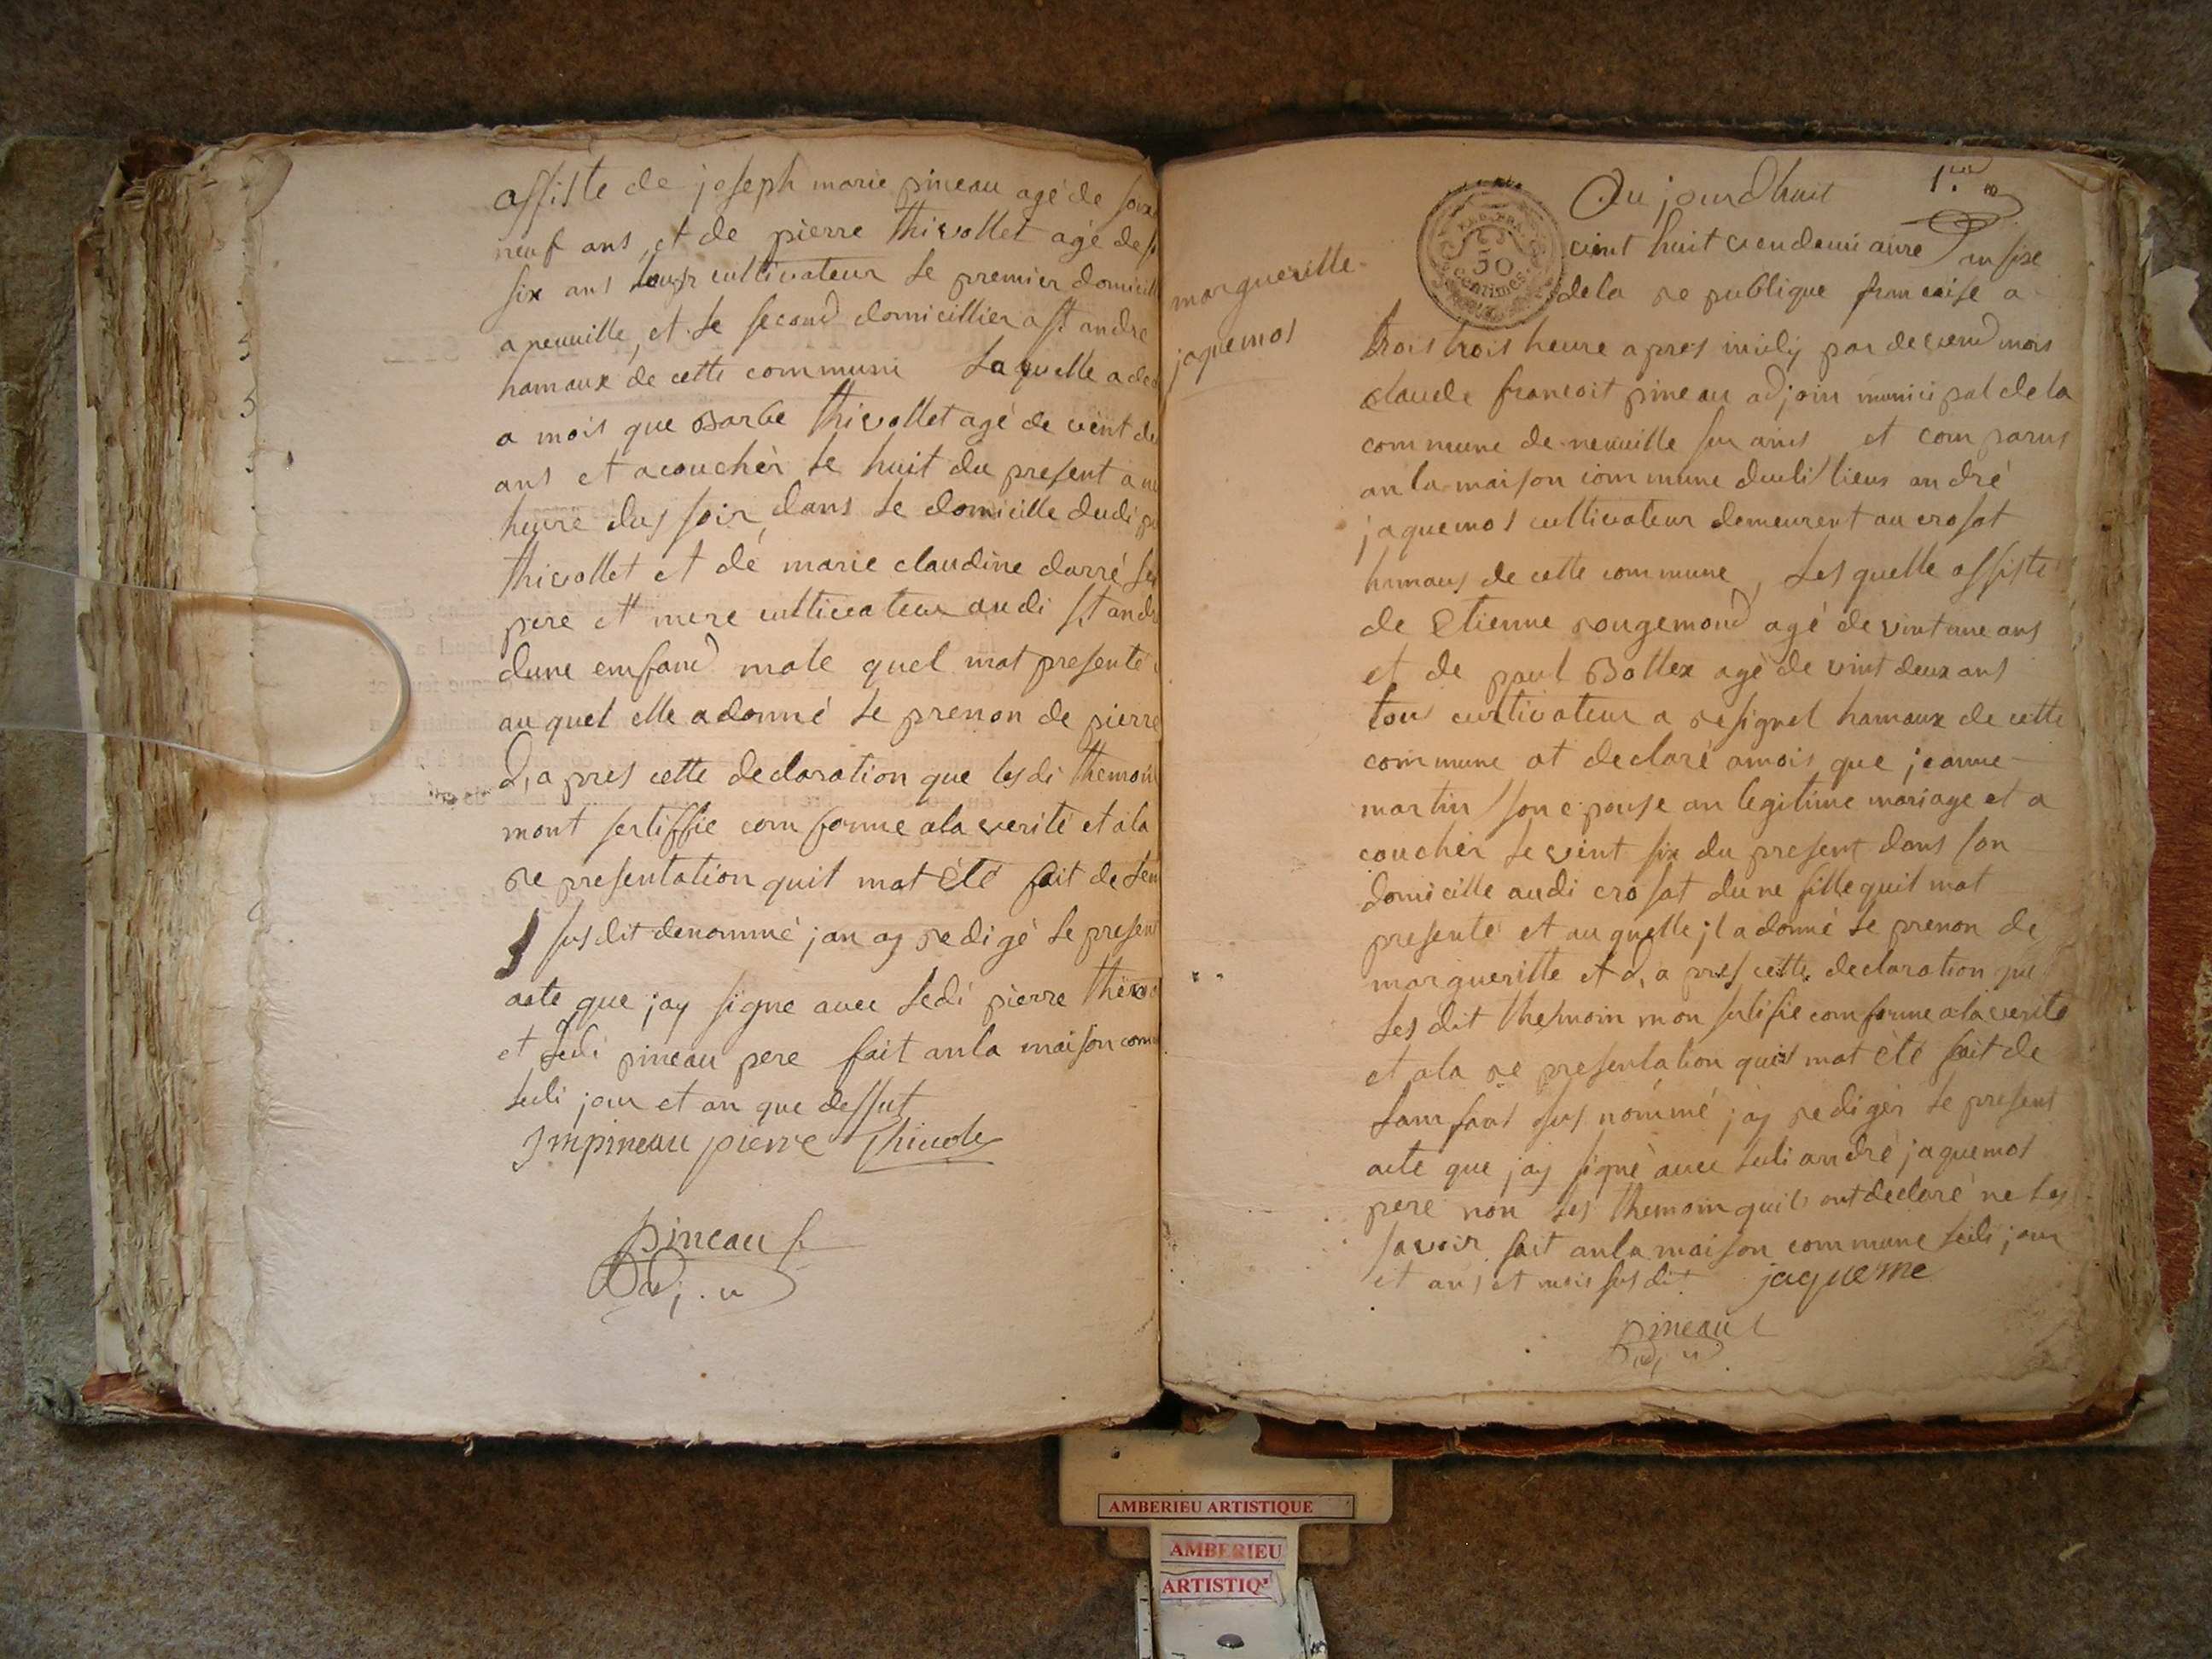 assiste de joseph marie pineau agé de soix
neuf ans, et de pierre thivollet agé de s
six ans tousr cultivateur le premier domicill
a neuville, et le second domicillier a st andre
hamaux de cette commune Laquelle a dec
a mois que Barbe thivollet agé de vint de
ans et acouchèr le huit du present a
heure dus soir, dans le domicille dudi p
thivollet et de marie claudine darré ses
pere et mere cultivateur audi st andr
dune emfand male quel mat presenté
auquel elle a donné le prenon de pierre
d, a pres cette declaration que lesdi themoin
mont sertiffie comforme ala verité et ala
re presentation quil mat été fait de
susdit denommé jan ay redigé le present
acte que jay signe avec ledi pierre
et ledi pineau pere fait anla maison com
ledi jour et an que dessut
Jmpineau pierre Thivole
pineau
Adj. u
marguerille
jaquemos
Au jourdhuit 1.er
vint huit vendemiaire an six
dela re publique francaise a
trois trois heure apres midy par devend mois
claude francoit pineau adjoin municipal de la
commune de neuville sur ains et comparus
an la maison commune duditlieus andré
jaquemos cultivateur demeurent au crosat
hamaus de cette commune, Lesquelle assiste
de Etienne rougemond agé de vint une ans
et de paul Bollex agé de vint deux ans
tou cultivateur a resignel hamaux de cette
commune at declaré amois que jeanne
martin son epouse an legitime mariage et a
couchèr le vint six du present dans son
domicille audi crosat dune fille quil mat
presenté et auquelle jl a donné le prenon de
marguerille et d, a pres cette declaration que
Les dit themoin mon sertifie comforme ala verité
et ala re presentation quil mat été fait de
Lamfant sus nommé jay redigèr le present
acte que jay signé avec ledi andré jaquemos
pere non les themoin quils ont declaré ne les
savoir fait anla maison commune ledi jour
et ans et mois susdit jaqueme
pineau
Adj u
50
centimes
AMBERIEU ARTISTIQUE
AMBERIEU
ARTISTIQ